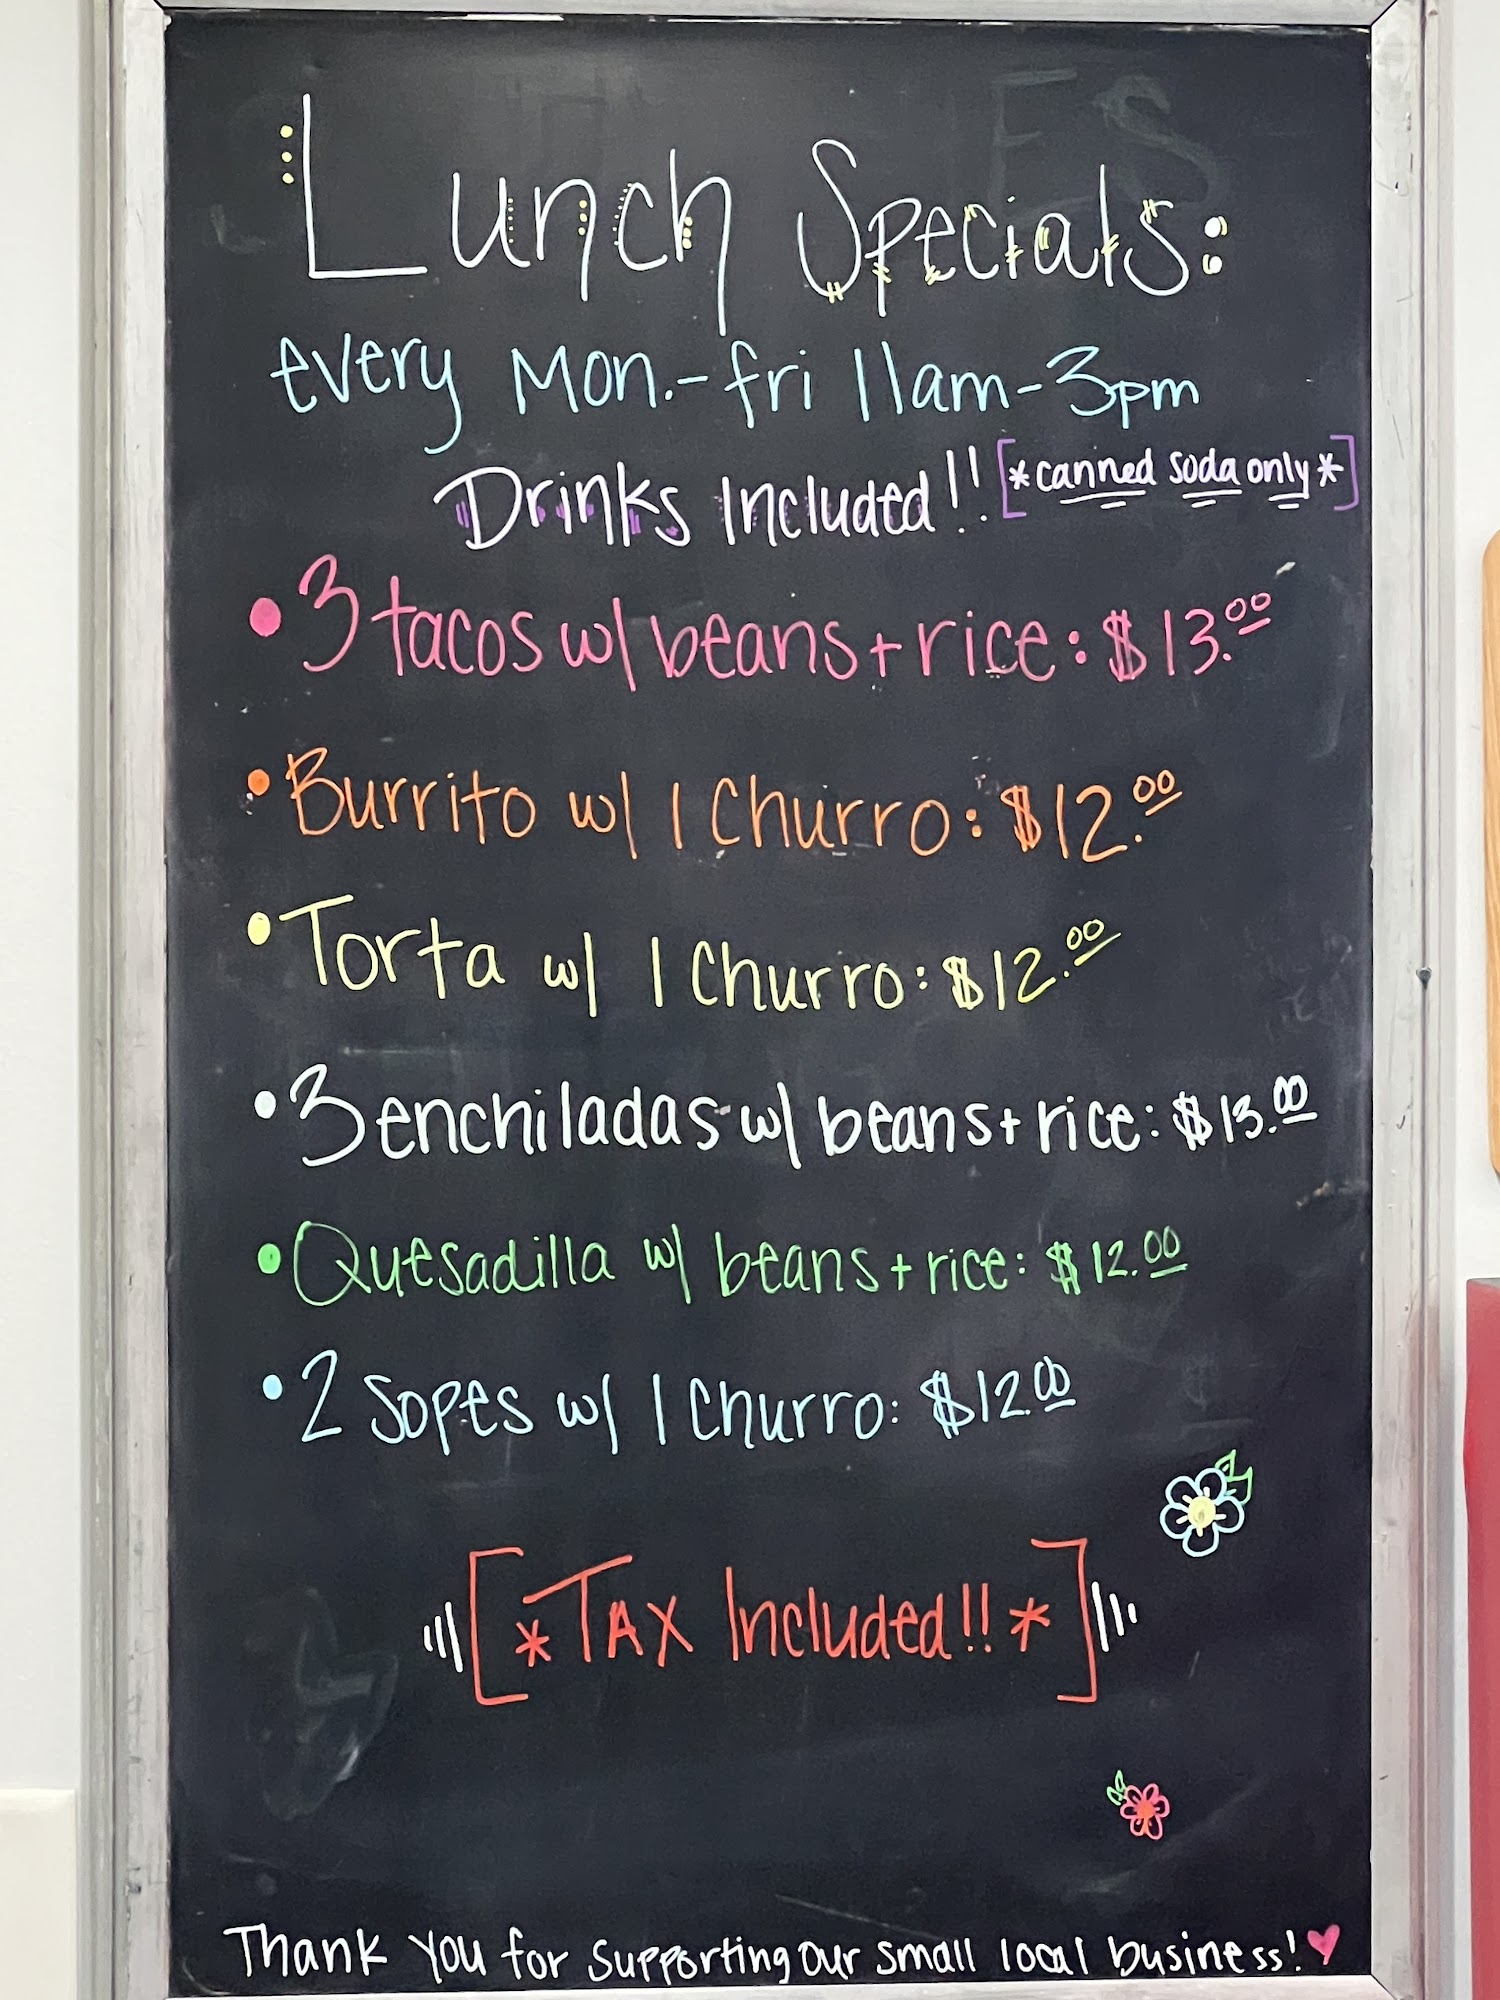 Lunch Specials:
every Mon.-fri 11am-3pm
Drinks Included!! [*canned soda only*]
• 3 tacos w/ beans + rice: $13.00
• Burrito w/ 1 Churro: $12.00
• Torta w/ 1 Churro: $12.00
• 3 enchiladas w/ beans + rice: $13.00
• Quesadilla w/ beans + rice: $12.00
• 2 Sopes w/ 1 Churro: $12.00
[*TAX Included!!*]
Thank you for supporting our small local business!♥